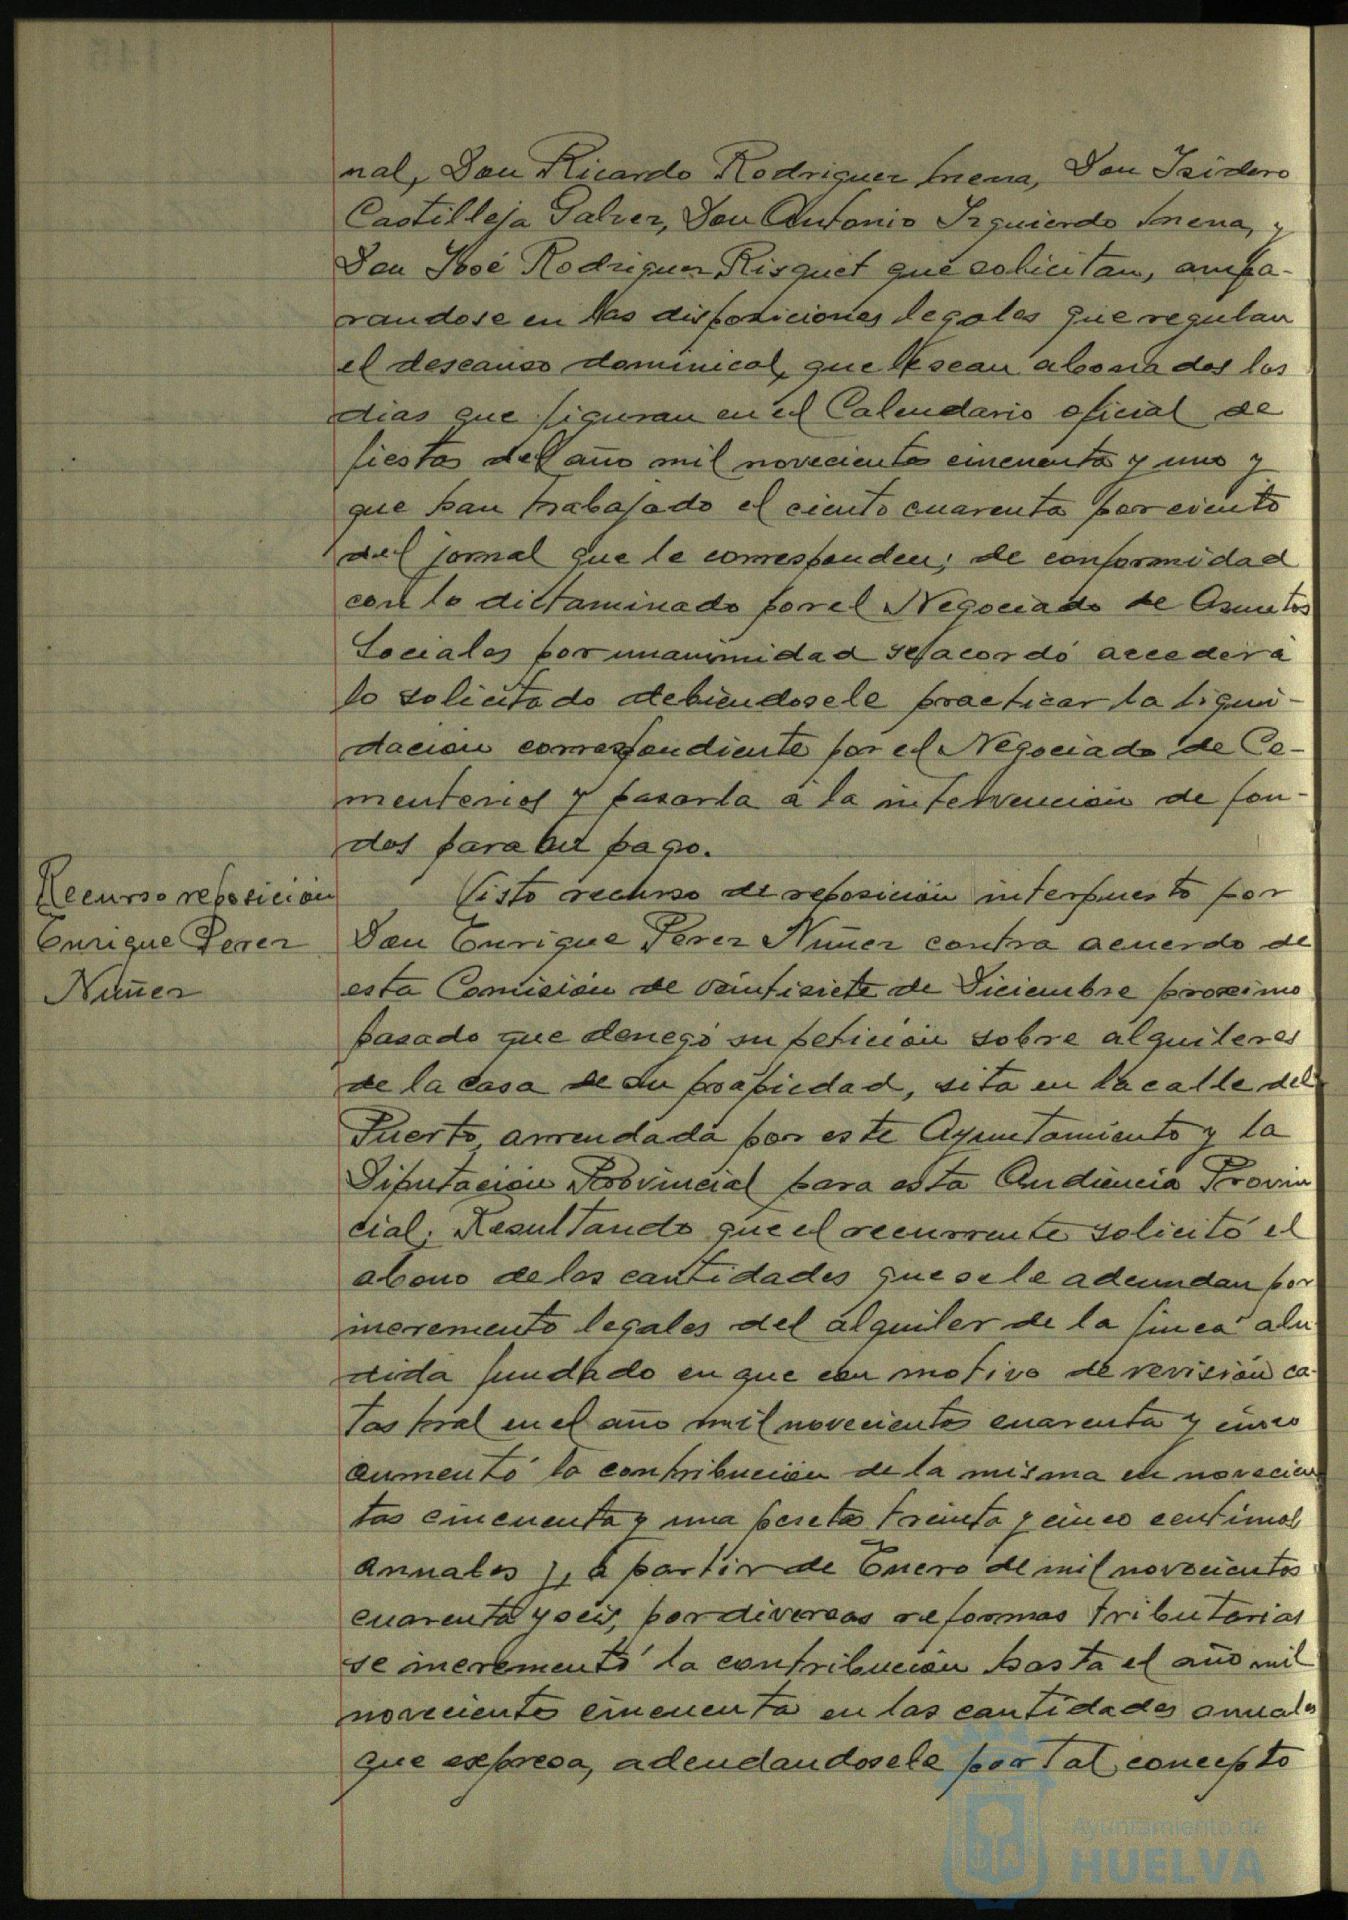 nal, Don Ricardo Rodriguez Mena, Don Isidoro
Castilleja Galvez, Don Antonio Izquierdo Mena, y
Don José Rodriguez Risquet que solicitan, ampa-
randose en las disposiciones legales que regulan
el descanso dominical, que le sean abonados los
dias que figuran en el Calendario oficial de
fiestas del año mil novecientos cincuenta y uno y
que han trabajado el ciento cuarenta por ciento
del jornal que le corresponden; de conformidad
con lo dictaminado por el Negociado de Asuntos
Sociales por unanimidad se acordó acceder á
lo solicitado debiendosele practicar la liqui-
dación correspondiente por el Negociado de Ce-
menterios y pasarla á la intervención de fon-
dos para su pago.
Recurso reposición
Enrique Perez
Nuñez
Visto recurso de reposición interpuesto por
Don Enrique Perez Nuñez contra acuerdo de
esta Comisión de veintisiete de Diciembre proximo
pasado que denegó su petición sobre alquileres
de la casa de su propiedad, sita en la calle del
Puerto, arrendada por este Ayuntamiento y la
Diputación Provincial para esta Audiencia Provin
cial; Resultando que el recurrente solicitó el
abono de las cantidades que se le adeudan por
incremento legales del alquiler de la finca alu
dida fundado en que con motivo de revisión ca-
tastral en el año mil novecientos cuarenta y cinco
aumentó la contribución de la misma en novecien
tas cincuenta y una pesetas treinta y cinco centimos
annales y, á partir de Enero de mil novecientos
cuarenta y seis, por diversas reformas tributarias
se incrementó la contribución hasta el año mil
novecientos cincuenta en las cantidades anuales
que expresa, adeudandosele por tal concepto
Ayuntamiento de
HUELVA